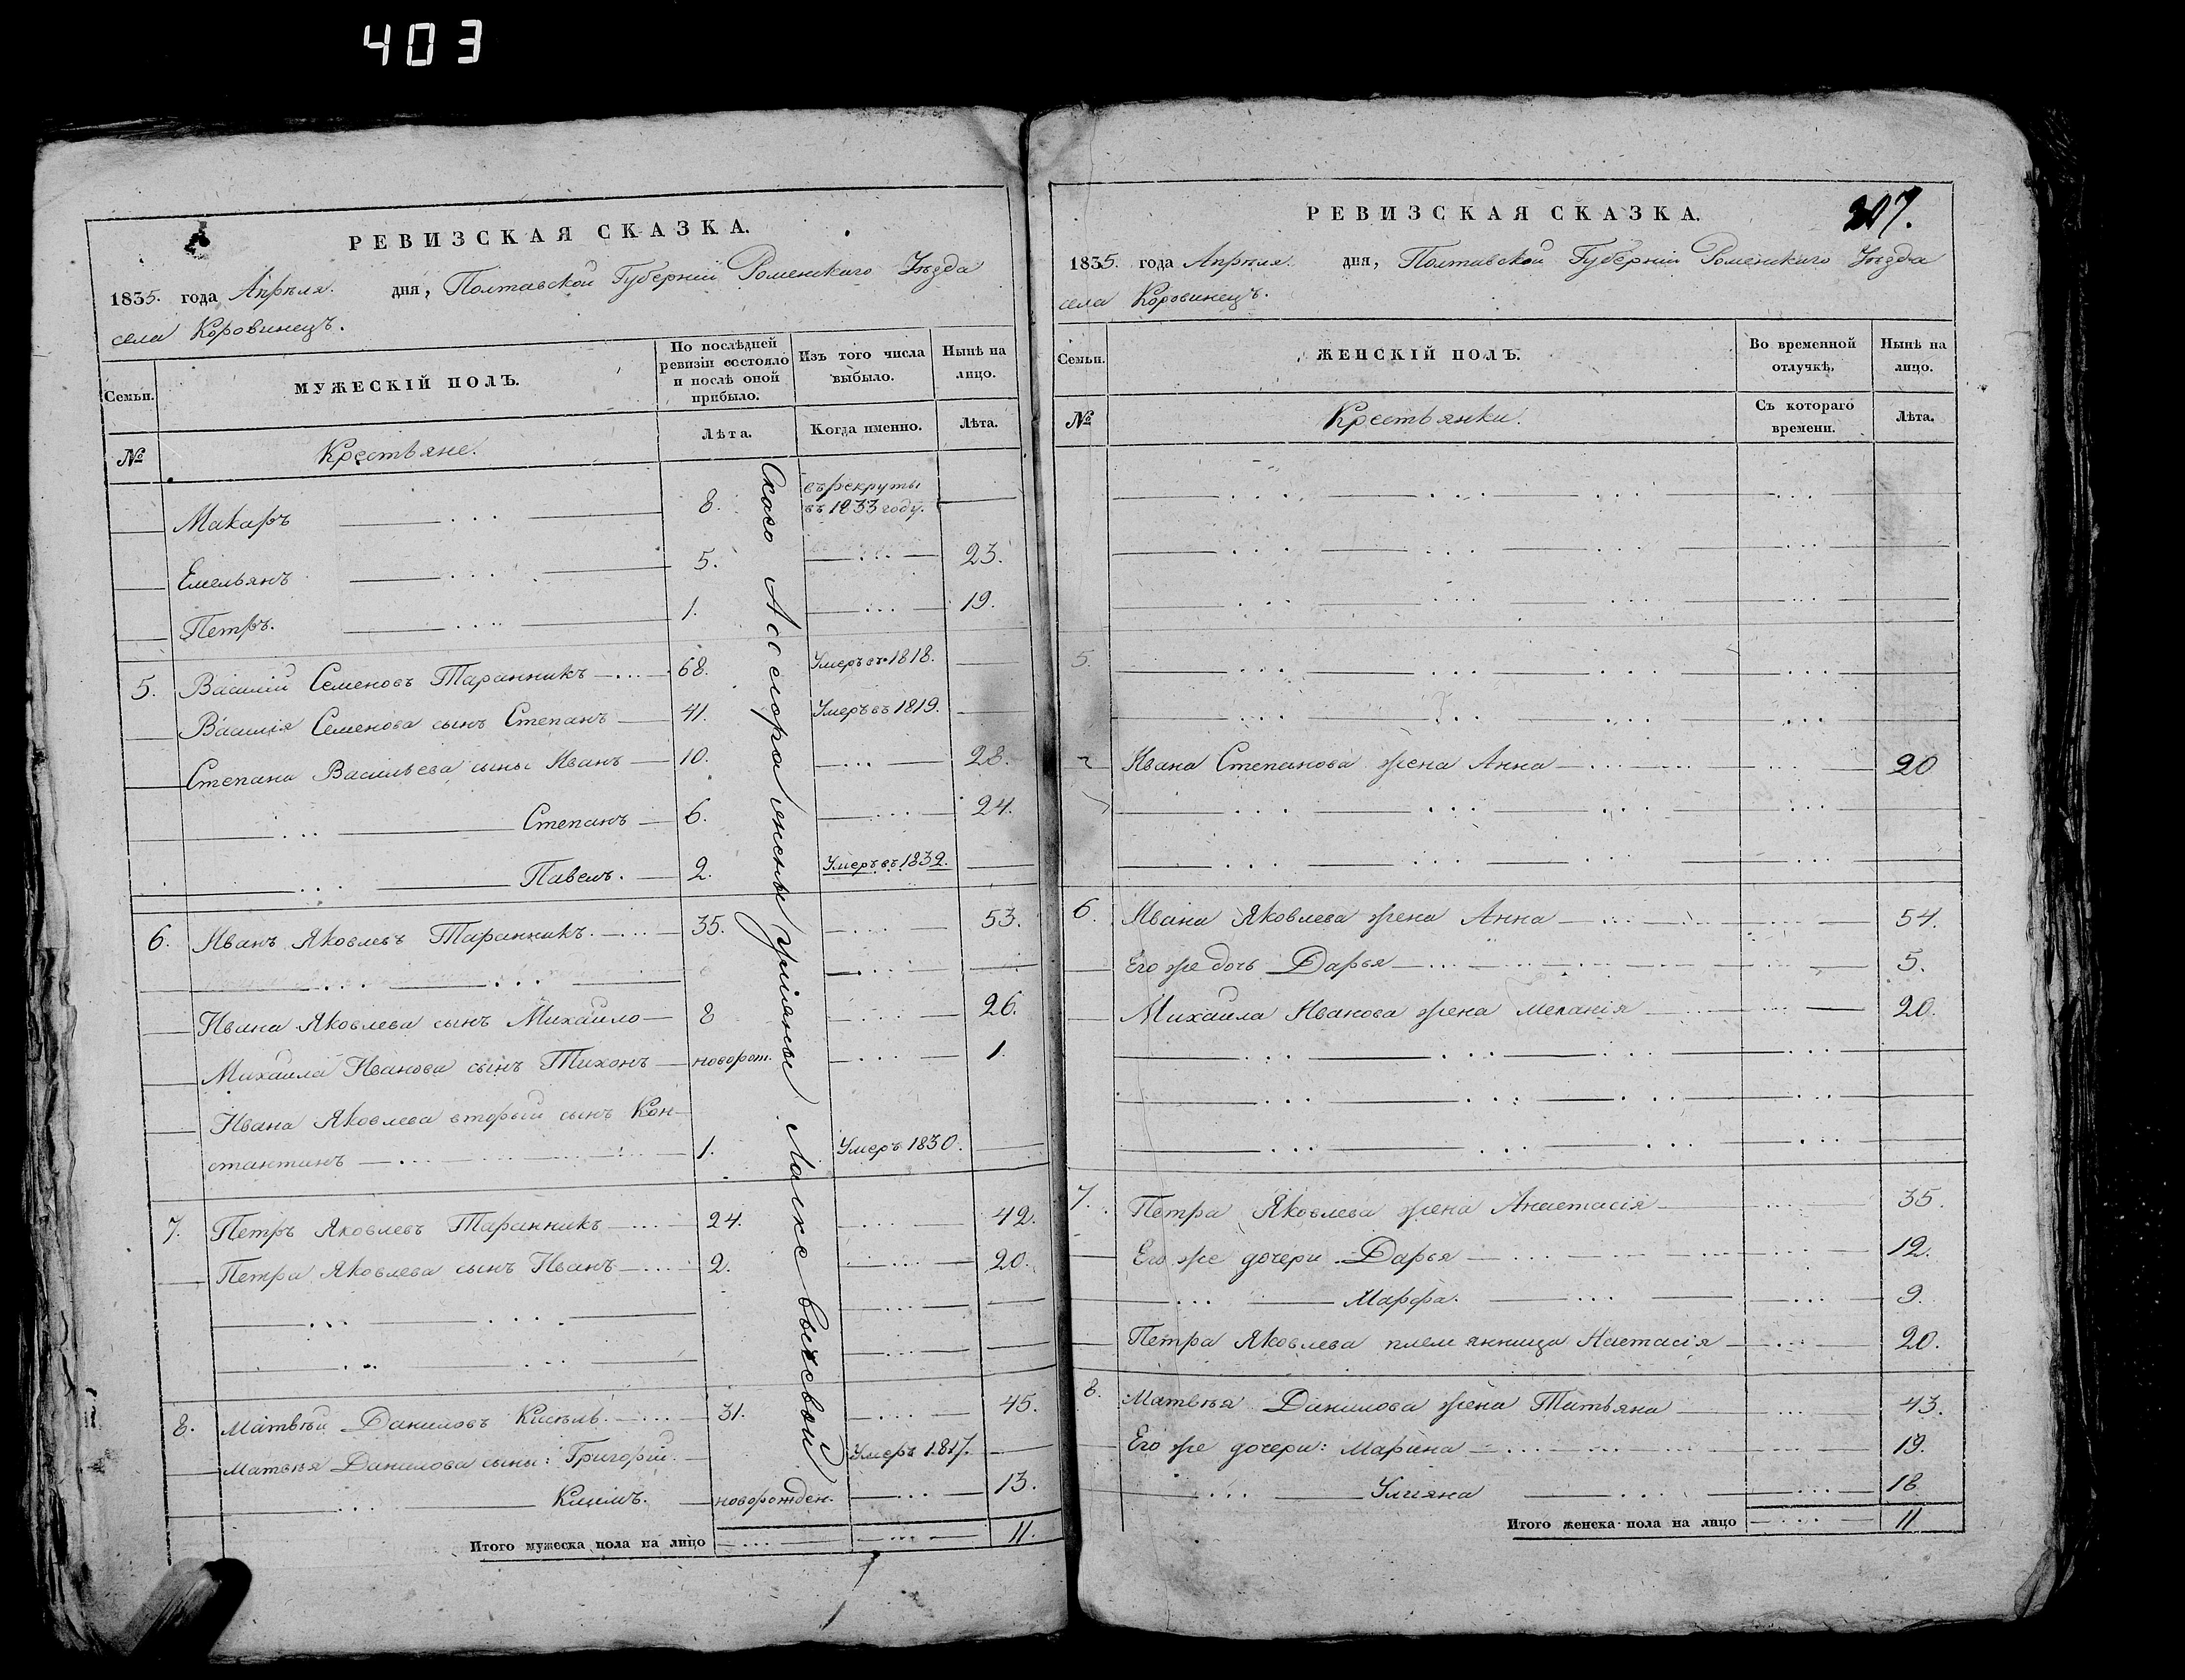 403
РЕВИЗСКАЯ СКАЗКА.
1835. года Апрѣля. дня, Полтавской Губерніи Роменскаго Уѣзда
села Коровинецъ.
Семьи. МУЖЕСКІЙ ПОЛЪ. По послѣдней ревизіи состояло и послѣ оной прибыло. Изъ того числа выбыло. Нынѣ на лицо.
№ Крестьяне. Лѣта. Когда именно. Лѣта.
Макаръ 8. въ рекруты въ 1833 году.
Емельянъ 5. 23.
Петръ. 1. 19.
5. Василій Семеновъ Таранникъ 68. Умеръ въ 1818.
Василія Семенова сынъ Степанъ 41. Умеръ въ 1819.
Степана Васильева сыны Иванъ 10. 28.
Степанъ 6. 24.
Павелъ. 2. Умеръ въ 1832.
6. Иванъ Яковлевъ Таранникъ. 35. 53.
Ивана Яковлева сынъ Михайло 8 26.
Михайла Иванова сынъ Тихонъ новорож. 1.
Ивана Яковлева вторый сынъ Кон-
стантинъ 1. Умеръ 1830.
7. Петръ Яковлевъ Таранникъ 24. 42.
Петра Яковлева сынъ Иванъ 2. 20.
8. Матвѣй Даниловъ Кисѣль. 31. 45.
Матвѣя Данилова сыны: Григорій. Умеръ 1817.
Климъ. новорожден. 13.
Итого мужеска пола на лицо 11.
Ассесора жены Уліяны
РЕВИЗСКАЯ СКАЗКА.
207.
1835. года Апрѣля. дня, Полтавской Губерніи Роменскаго Уѣзда
села Коровинецъ.
Семьи. ЖЕНСКІЙ ПОЛЪ. Во временной отлучкѣ. Нынѣ на лицо.
№ Крестьянки. Съ котораго времени. Лѣта.
5.
Ивана Степанова жена Анна 20
6. Ивана Яковлева жена Анна 54.
Его же дочь Дарья 5.
Михайла Иванова жена Меланія 20.
7. Петра Яковлева жена Анастасія 35.
Его же дочери Дарья 12.
Марфа. 9.
Петра Яковлева племянница Настасія 20.
8. Матвѣя Данилова жена Татьяна 43.
Его же дочери: Марина 19.
Улияна 18.
Итого женска пола на лицо 11